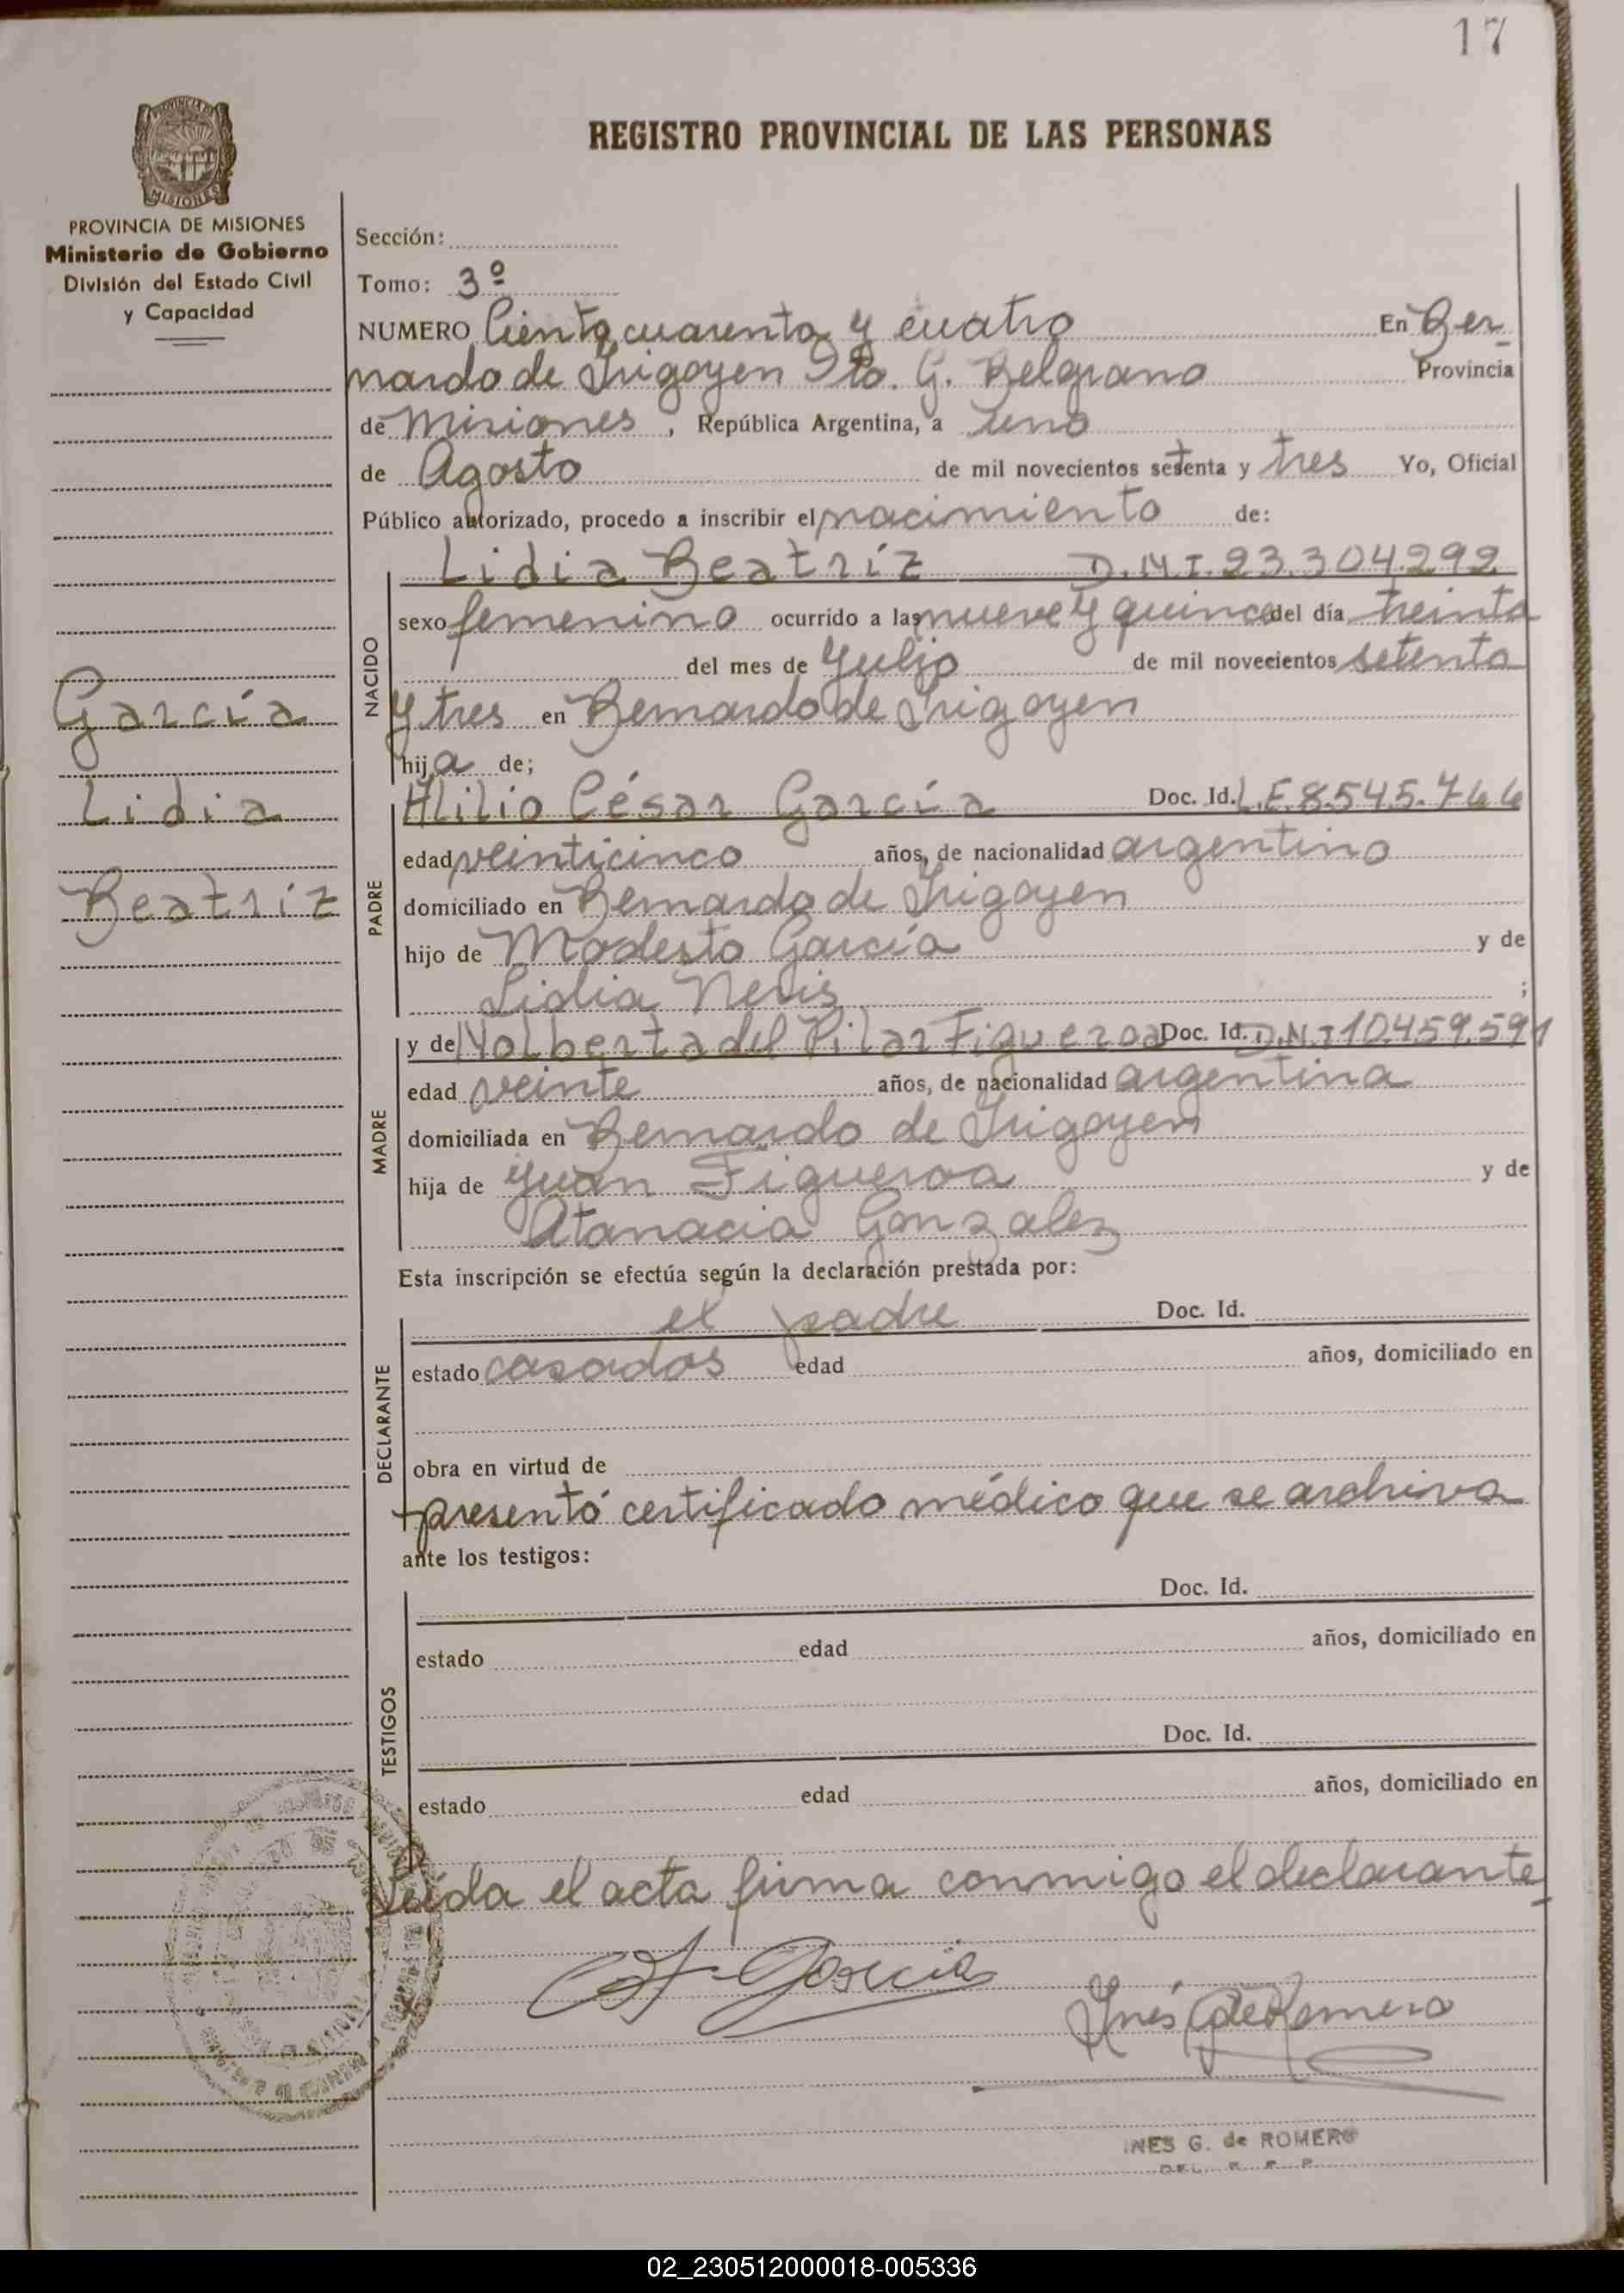 17
REGISTRO PROVINCIAL DE LAS PERSONAS
PROVINCIA DE MISIONES
Ministerio de Gobierno
División del Estado Civil
y Capacidad
Sección:
Tomo: 3º
NUMERO Ciento cuarenta y cuatro En Ber
nardo de Irigoyen Dto. G. Belgrano Provincia
de Misiones, República Argentina, a uno
de Agosto de mil novecientos setenta y tres Yo, Oficial
Público autorizado, procedo a inscribir el nacimiento de:
Lidia Beatríz D.N.I. 23.304.292
NACIDO
sexo femenino ocurrido a las nueve y quince del día treinta
del mes de Julio de mil novecientos setenta
y tres en Bernardo de Irigoyen
hija de;
García
Lidia
Beatríz
PADRE
César García Doc. Id. L.E. 8.545.766
edad veinticinco años, de nacionalidad argentino
domiciliado en Bernardo de Irigoyen
hijo de Modesto García y de
Lidia ;
MADRE
y de del Pilar Figueroa Doc. Id. D.N.I 10.459.591
edad veinte años, de nacionalidad argentina
domiciliada en Bernardo de Irigoyen
hija de Juan Figueroa y de
Atanacia Gonzalez
Esta inscripción se efectúa según la declaración prestada por:
DECLARANTE
el padre Doc. Id.
estado casados edad años, domiciliado en
obra en virtud de
presentó certificado médico que se archiva
ante los testigos:
TESTIGOS
Doc. Id.
estado edad años, domiciliado en
Doc. Id.
estado edad años, domiciliado en
Leída el acta firma conmigo el declarante
García
Inés G de Romero
INES G. de ROMERO
02_230512000018-005336